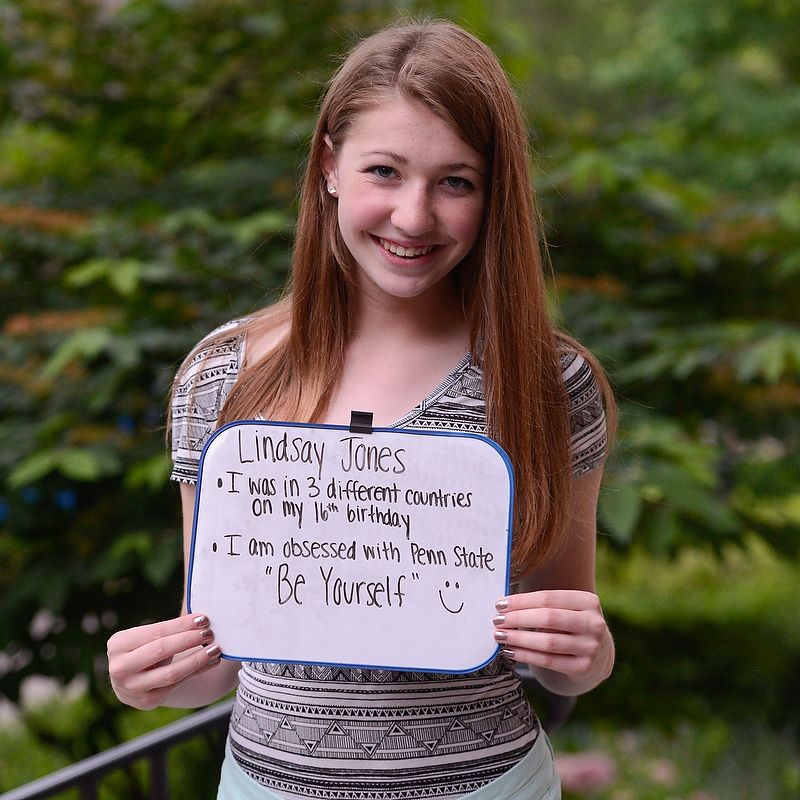 Lindsay Jones
• I was in 3 different countries
on my 16th birthday
• I am obsessed with Penn State
"Be Yourself" :)